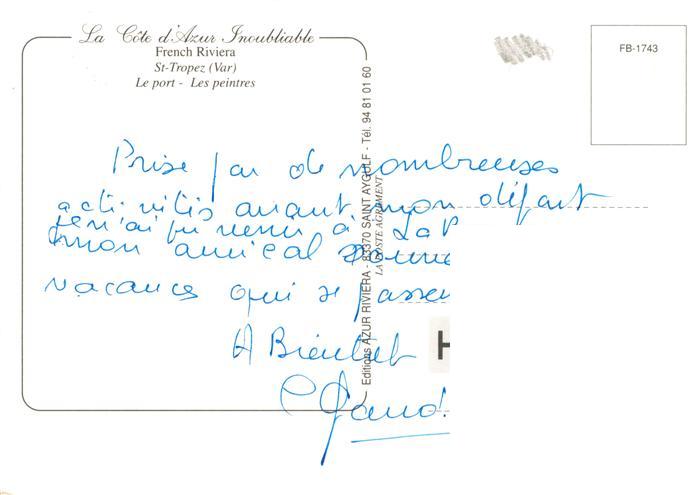 La Côte d'Azur Inoubliable
French Riviera
St-Tropez (Var)
Le port - Les peintres
FB-1743
Editions AZUR RIVIERA - 83370 SAINT AYGULF - Tél. 94 81 01 60
LA POSTE AGREMENT
Prise par de nombreuses
activités avant mon départ
je n'ai pu venir à La
mon amical
vacances qui se passen
A Bientôt
H